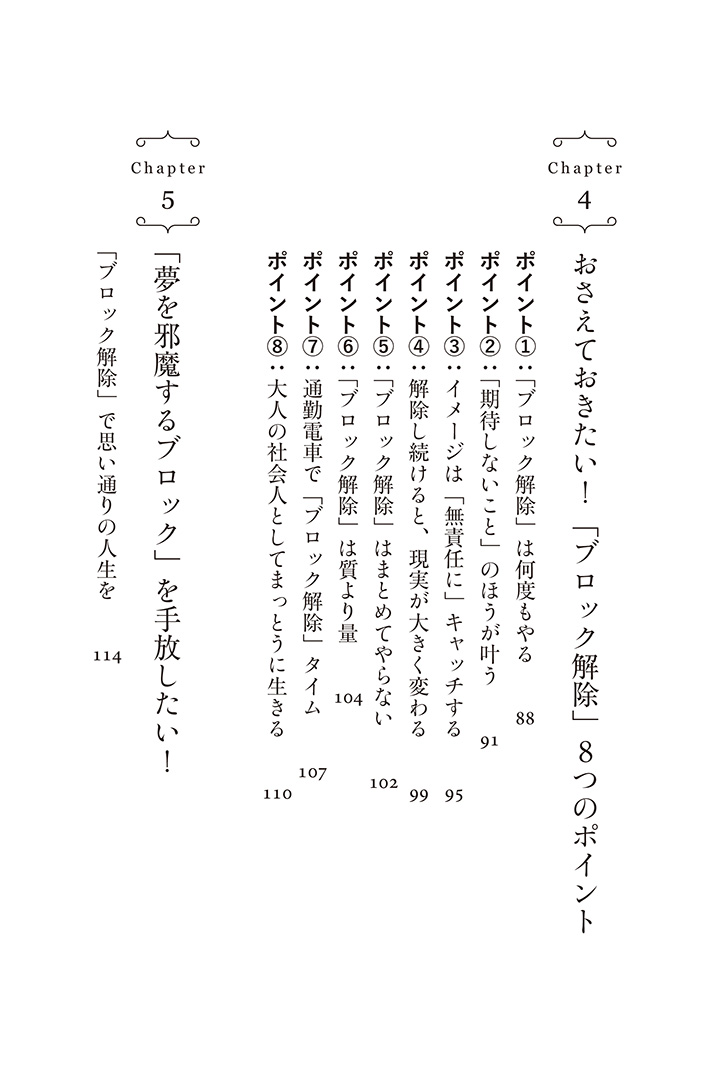 Chapter
4
おさえておきたい！「ブロック解除」8つのポイント
ポイント①：「ブロック解除」は何度もやる 88
ポイント②：「期待しないこと」のほうが叶う 91
ポイント③：イメージは「無責任に」キャッチする 95
ポイント④：解除し続けると、現実が大きく変わる 99
ポイント⑤：「ブロック解除」はまとめてやらない 102
ポイント⑥：「ブロック解除」は質より量 104
ポイント⑦：通勤電車で「ブロック解除」タイム 107
ポイント⑧：大人の社会人としてまっとうに生きる 110
Chapter
5
「夢を邪魔するブロック」を手放したい！
「ブロック解除」で思い通りの人生を 114